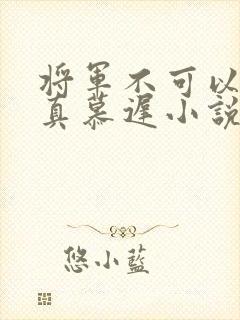 將軍不可以
真慕遲小說
悠小藍